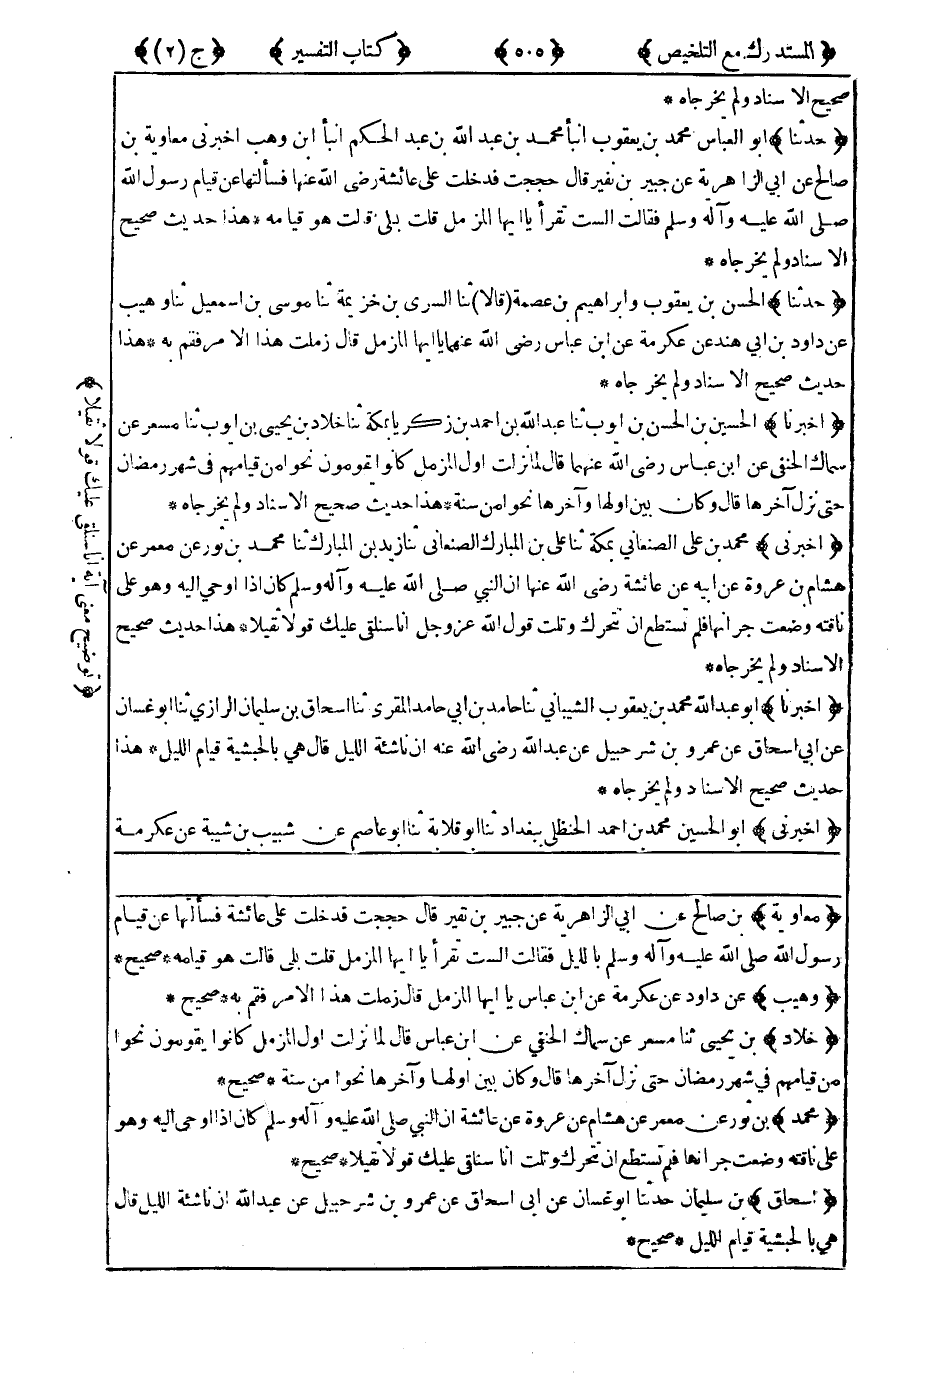 ﴿ المستدرك مع التلخيص ﴾ ﴿ ٥٠٥ ﴾ ﴿ كتاب التفسير ﴾ ﴿ ج (٢) ﴾
صحيح الاسناد ولم يخرجاه *
﴿ حدثنا ﴾ ابو العباس محمد بن يعقوب انبأ محمد بن عبد الله بن عبد الحكم انبأ ابن وهب اخبرنى معاوية بن
صالح عن ابي الزاهرية عن جبير بن نفير قال حججت فدخلت على عائشة رضى الله عنها فسألتها عن قيام رسول الله
صلى الله عليه وآله وسلم فقالت الست تقرأ ياايها المزمل قلت بلى قالت هو قيامه * هذا حديث صحيح
الاسناد ولم يخرجاه *
﴿ حدثنا ﴾ الحسن بن يعقوب وابراهيم بن عصمة (قالا) ثنا السرى بن خزيمة ثنا موسى بن اسمعيل ثنا وهيب
عن داود بن ابي هند عن عكرمة عن ابن عباس رضى الله عنهما ياايها المزمل قال زملت هذا الامر فقم به * هذا
حديث صحيح الاسناد ولم يخرجاه *
﴿ اخبرنا ﴾ الحسين بن الحسن بن ايوب ثنا عبد الله بن احمد بن زكريا بمكة ثنا خلاد بن يحيى بن ايوب ثنا مسعر عن
سماك الحنفي عن ابن عباس رضى الله عنهما قال لما نزلت اول المزمل كانوا يقومون نحوا من قيامهم فى شهر رمضان
حتى نزل آخرها قال وكان بين اولها وآخرها نحوا من سنة * هذا حديث صحيح الاسناد ولم يخرجاه *
﴿ اخبرنى ﴾ محمد بن على الصنعاني بمكة ثنا على بن المبارك الصنعانى ثنا زيد بن المبارك ثنا محمد بن ثور عن معمر عن
هشام بن عروة عن ابيه عن عائشة رضى الله عنها ان النبي صلى الله عليه وآله وسلم كان اذا اوحي اليه وهو على
ناقته وضعت جرانها فلم تستطع ان تتحرك وتلت قول الله عز وجل انا سنلقى عليك قولا ثقيلا * هذا حديث صحيح
الاسناد ولم يخرجاه *
﴿ اخبرنا ﴾ ابو عبد الله محمد بن يعقوب الشيباني ثنا حامد بن ابي حامد المقرى ثنا اسحاق بن سليمان الرازي ثنا ابو غسان
عن ابي اسحاق عن عمرو بن شرحبيل عن عبد الله رضى الله عنه ان ناشئة الليل قال هي بالحبشية قيام الليل * هذا
حديث صحيح الاسناد ولم يخرجاه *
﴿ اخبرنى ﴾ ابو الحسين محمد بن احمد الحنظلى ببغداد ثنا ابو قلابة ثنا ابو عاصم عن شبيب بن شيبة عن عكرمة
﴿ توضيح معنى آية انا سنلقى عليك قولا ثقيلا ﴾
﴿ معاوية ﴾ بن صالح عن ابي الزاهرية عن جبير بن نفير قال حججت فدخلت على عائشة فسألتها عن قيام
رسول الله صلى الله عليه وآله وسلم بالليل فقالت الست تقرأ ياايها المزمل قلت بلى قالت هو قيامه * صحيح *
﴿ وهيب ﴾ عن داود عن عكرمة عن ابن عباس يا ايها المزمل قال زملت هذا الامر فقم به * صحيح *
﴿ خلاد ﴾ بن يحيى ثنا مسعر عن سماك الحنفي عن ابن عباس قال لما نزلت اول المزمل كانوا يقومون نحوا
من قيامهم في شهر رمضان حتى نزل آخرها قال وكان بين اولها وآخرها نحوا من سنة * صحيح *
﴿ محمد ﴾ بن ثور عن معمر عن هشام عن عروة عن عائشة ان النبي صلى الله عليه وآله وسلم كان اذا اوحى اليه وهو
على ناقته وضعت جرانها فلم تستطع ان تتحرك وتلت انا سنلقى عليك قولا ثقيلا * صحيح *
﴿ اسحاق ﴾ بن سليمان حدثنا ابو غسان عن ابى اسحاق عن عمرو بن شرحبيل عن عبد الله ان ناشئة الليل قال
هي بالحبشية قيام الليل * صحيح *